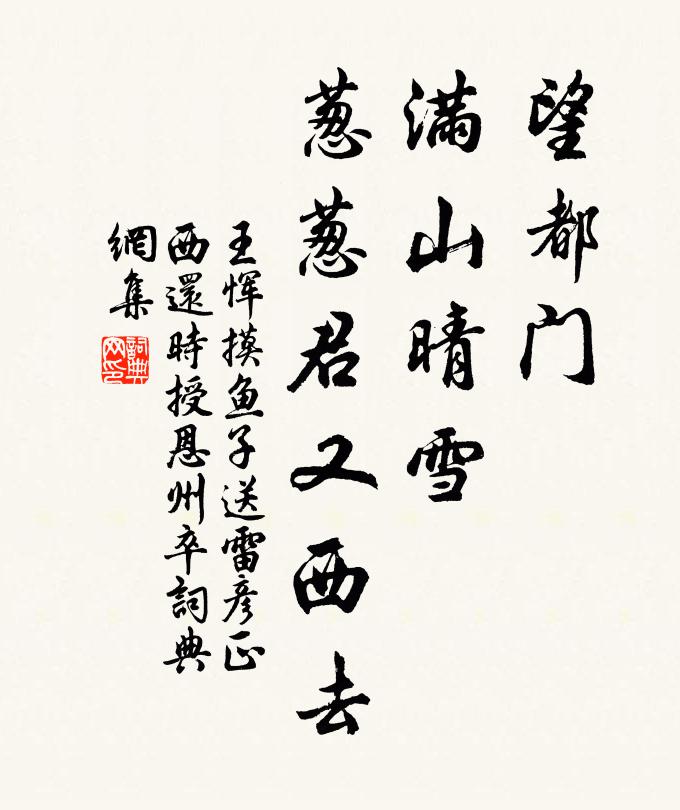 望都门
满山晴雪
葱葱君又西去
王恽摸鱼子送雷彦正
西還時授恩州卒詞典
網集
詞典
网印